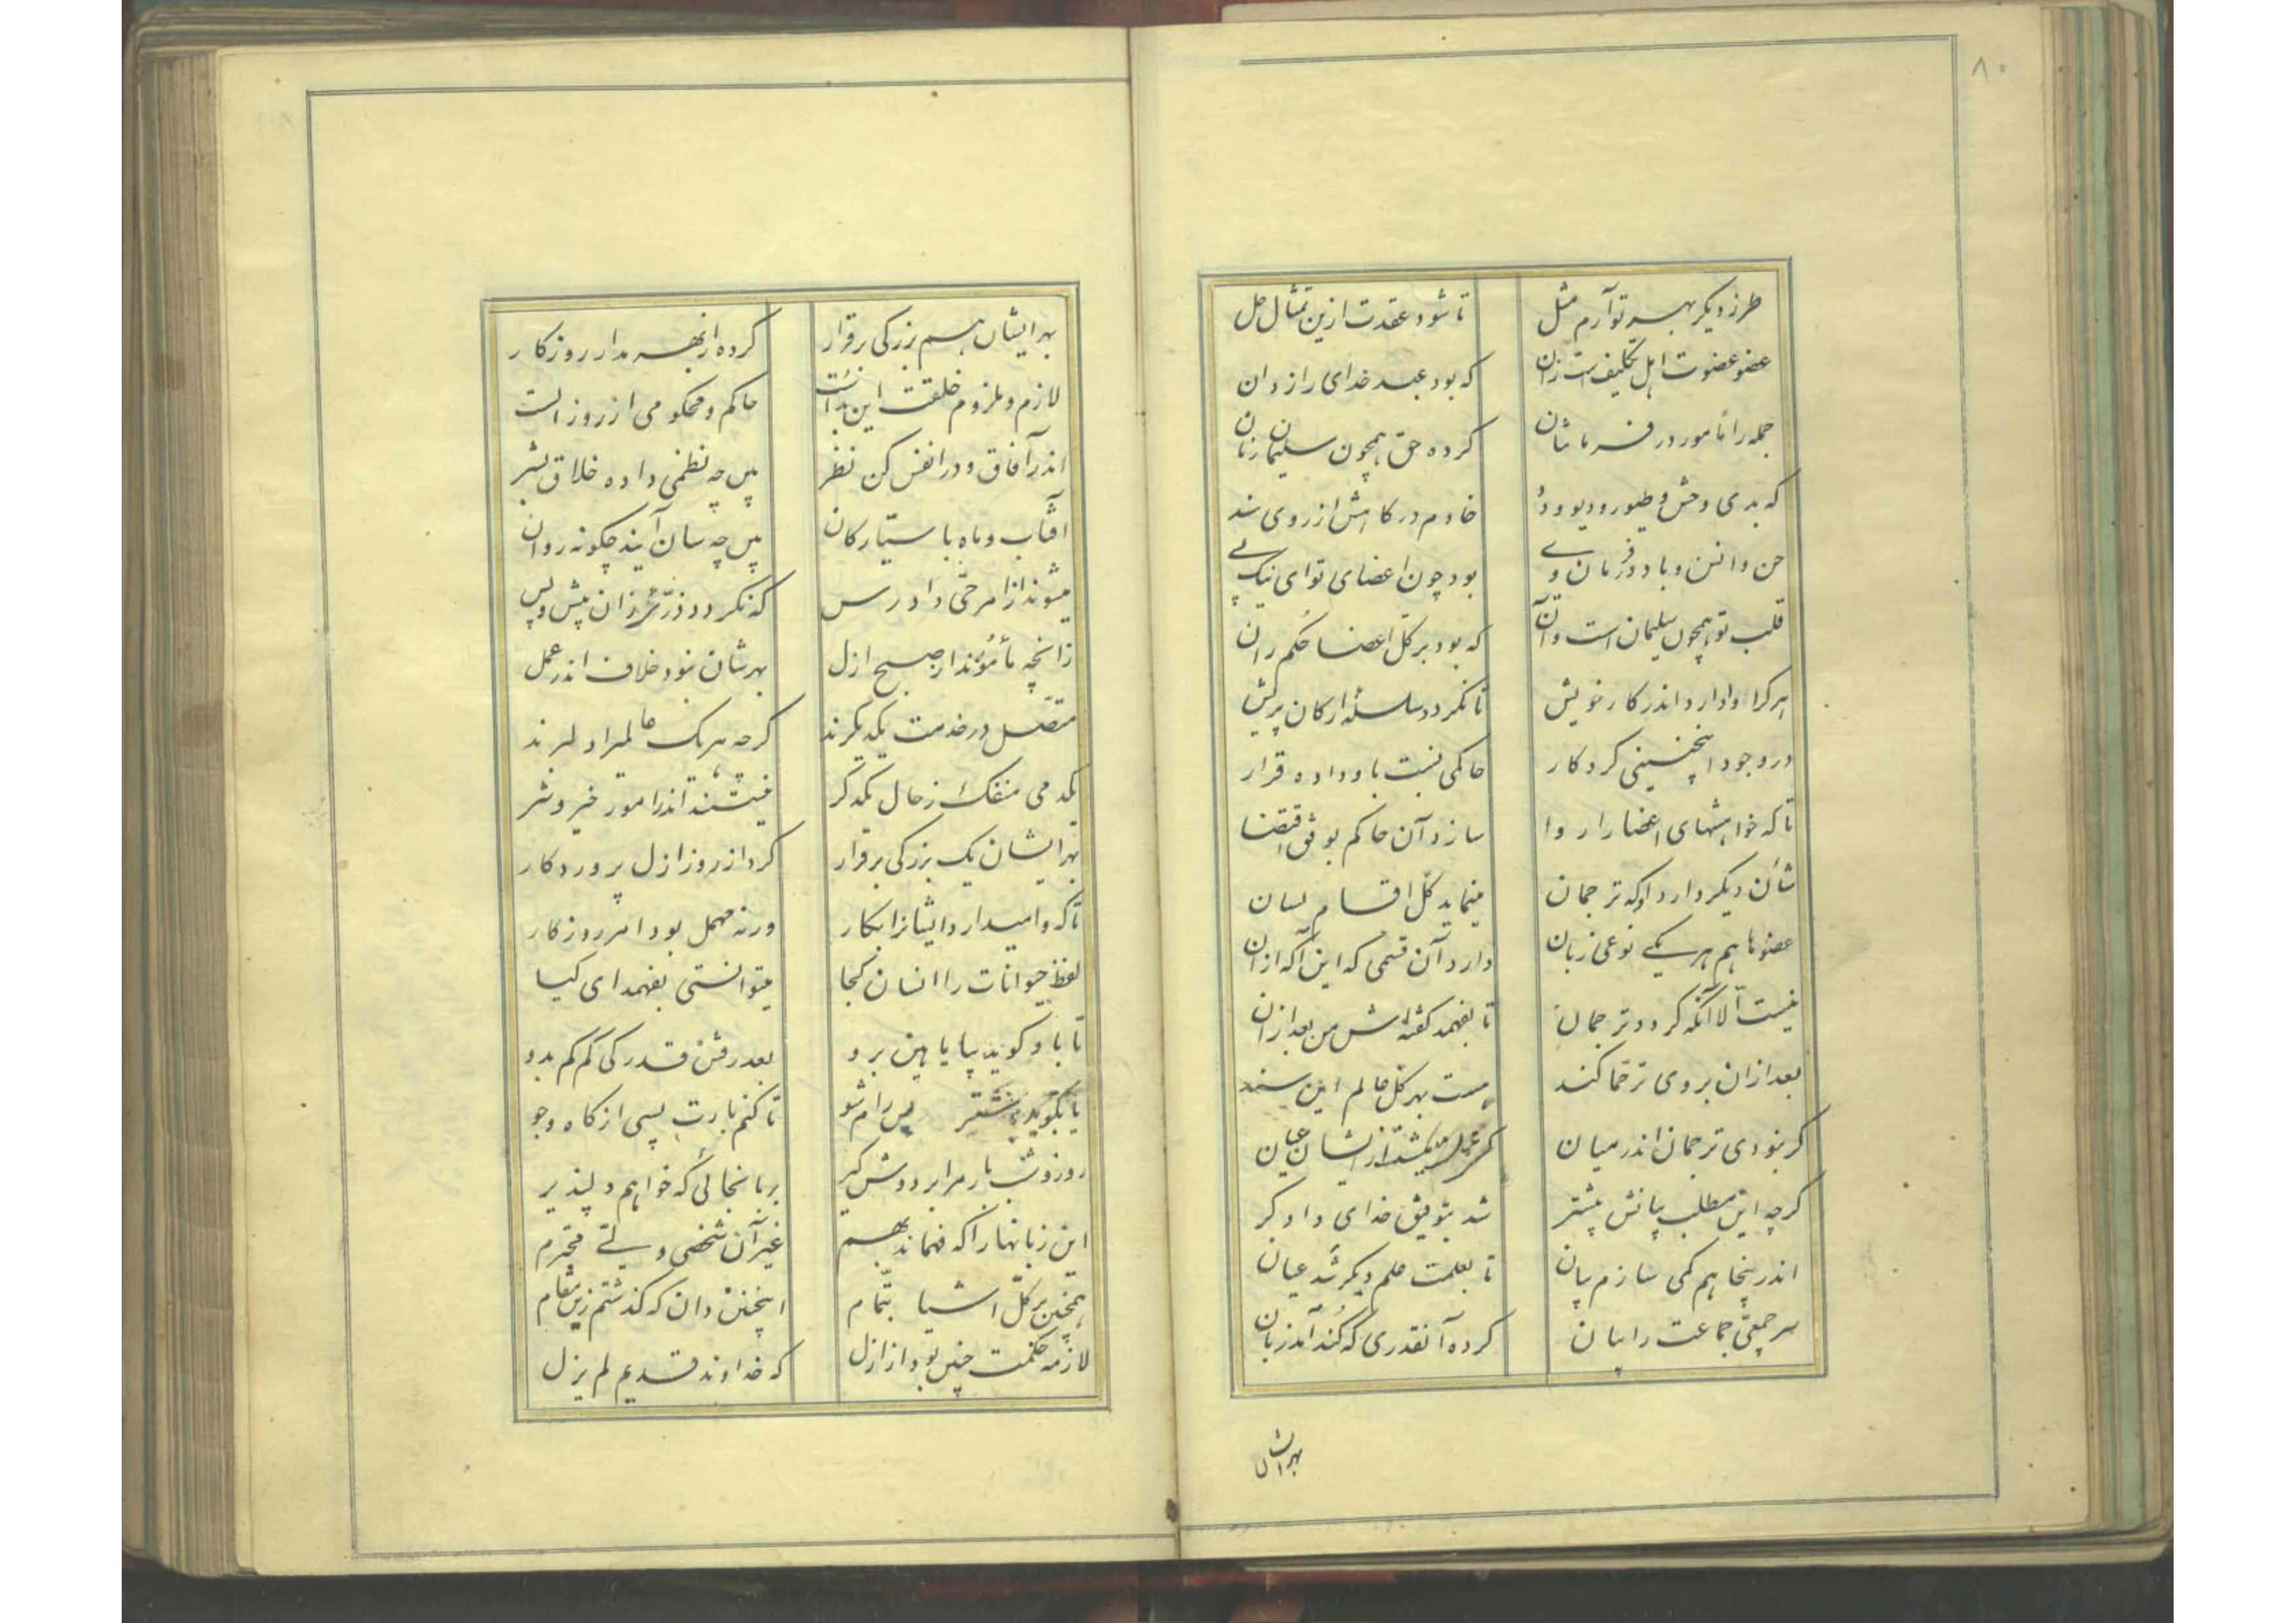 ۸۰
طرز دیکر بهر تو آرم مثل تا شود عقدت ازین تمثال حل
عضو عضوت اهل تکلیف است زان که بود عبد خدای رازدان
جمله را مامور در فرماشان کرده حق همچون سلیمان زمان
که بدی وحش و طیور و دیو و دد خادم درکاهش از روی سند
جن و انس و باد و فرمان وے بود چون اعضای تو ای نیک پے
قلب تو همچون سلیمان است و آن که بود بر کل اعضا حُکم ران
هر کرا وادارد اندر کار خویش تا نکردد سلسلهٔ ارکان پریش
در وجود اینچنینی کردکار حاکمی نسبت باو داده قرار
تا که خواهشهای اعضا را روا سازد آن حاکم بوفق اقتضا
شأن دیکر دارد او که ترجمان مینماید کل اقسام لسان
عضوها هم هر یکے نوعی زبان دارد آن قسمی که این آکه از آن
نیست الا آنکه کردد ترجمان تا بفهمد کفته‌اش من بعد از آن
بعد از آن بروی ترحما کند هست بهر کل عالم این سند
کر نبودی ترجمان اندر میان عیان
کرچه این مطلب بیانش پیشتر شد بتوفیق خدای دادکر
اندر اینجا هم کمی سازم بیان تا بعلمت علم دیکر شد عیان
سر جمعی جماعت را بیان کرده آنقدری که کُند آمد زبان
بهر ایشان
بهر ایشان هم بزرکی برقرار کرده از بهر مدار روزکار
لازم و ملزوم خلقت این بداست حاکم و محکومی از روز الست
اندر آفاق و در انفس کن نظر پس چه نظمی داده خلاق بشر
آفتاب و ماه با سیّارکان پس چه سان آیند چکونه روان
میشوند از امر حیّ دادرس که نکردد ذرّهٔ زان پیش و پس
زانچه مأمورند از صبح ازل بهرشان نبود خلاف اندر عمل
متصل در خدمت یکدیکرند کرچه هر یک عالمیرا دلبرند
یکدمی منفک ز حال یکدکر نیستند اندر امور خیر و شر
بهر ایشان یک بزرکی برقرار کرد از روز ازل پروردکار
تا که وامیدارد ایشانرا بکار ورنه مهمل بود امر روزکار
لفظ حیوانات را انسان کجا میتوانستی بفهمد ای کیا
تا باو کوید بیا یا هین برو بعد رفتن قدرکی کم کم بدو
یا بکوید پیشتر پس رام شو تا کنم بارت بسی از کاه و جو
روز و شب بار مرا بر دوش کیر بر بانجائی که خواهم دلپذیر
این زبانها را که فهماند بهم غیر آن شخصی ولے محترم
همچنین بر کلّ اشیا بتمام اینچنین دان که کذشتم زین مقام
لازمه حکمت چنین بود از ازل که خداوند قدیم لم یزل